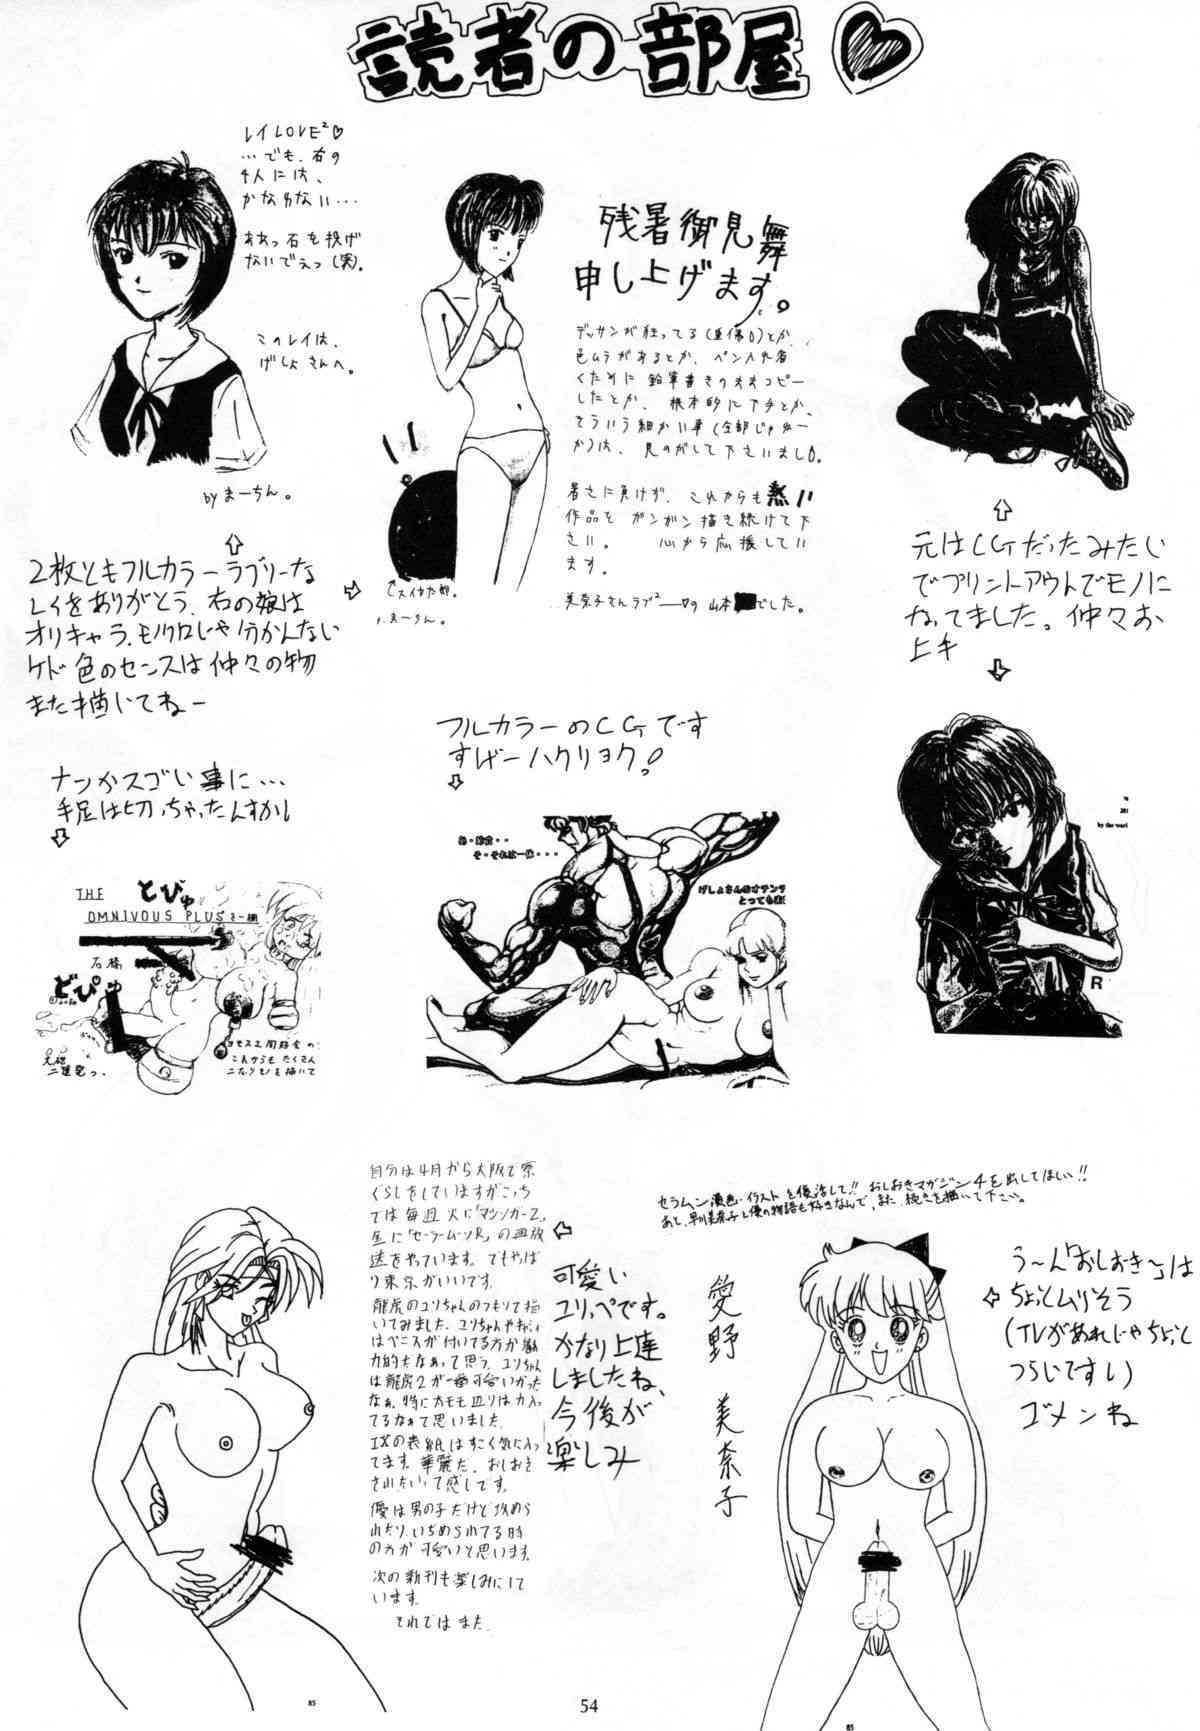 読者の部屋
レイLOVE²♡
…でも、右の
4人には、
かなわない…
ああっ石を投げ
ないでえっ(笑)。
このレイは、
げしょさんへ。
by まーちん。
残暑御見舞
申し上げます。
デッサンが狂ってる
色ムラがあるとか、ペン入れ省
くために鉛筆書きのままコピー
したとか、根本的に下手とか、
そういう細かい事(全部じゃねー
か)は、見のがして下さいまし。
暑さに負けず、これからも熱い
作品をガンガン描き続けて下
さい。心から応援してい
ます。
美奈子さんラブ²
の山本
でした。
まーちん。
2枚ともフルカラーラブリーな
レイをありがとう、右の娘は
オリキャラ、モノクロじゃ分かんない
ケド色のセンスは仲々の物
また描いてねー
元はCGだったみたい
でプリントアウトでモノに
なってました。仲々お
上手
ナンかスゴい事に…
手足は切っちゃったんすかい
フルカラーのCGです
すげーハクリョク!
THE
OMNIVOUS PLUS
とびゅ
石橋
どぴゅ
これからもたくさん
ふたなりモノを描いて
そ・それは一体・・・
げしょさんのオテンテ
とっても
by the
R
自分は4月から大阪で寮
ぐらしをしていますがこっち
では毎週火に「マジンガーZ」
金に「セーラームーンR」の再放
送をやっています。でもやっぱ
り東京がいいです。
龍虎のユリちゃんのつもりで描
いてみました。ユリちゃんや
はペニスが付いてる方が魅
力的だなぁって思う。ユリちゃん
は龍虎2が一番可愛いかった
なぁ。特に太モモ辺りは力入っ
てるなぁて思いました。
の表紙はすごく気に入っ
てます。華麗だ、おしおき
されたいって感じです。
優は男の子だけど攻めら
れたり、いぢめられてる時
の方が可愛いと思います。
次の新刊も楽しみにして
います。
それではまた
可愛い
ユリッペです。
かなり上達
しましたね、
今後が
楽しみ
セラムン漫画・イラストを復活して!! おしおきマガジン4を出してほしい!!
あと、早川美奈子と優の物語も好きなんで、また、続きを描いて下さい。
愛野 美奈子
う〜ん「おしおき〜」は
ちょっとムリそう
(TVがあれじゃちょっと
つらいですし)
ゴメンね
85
54
85